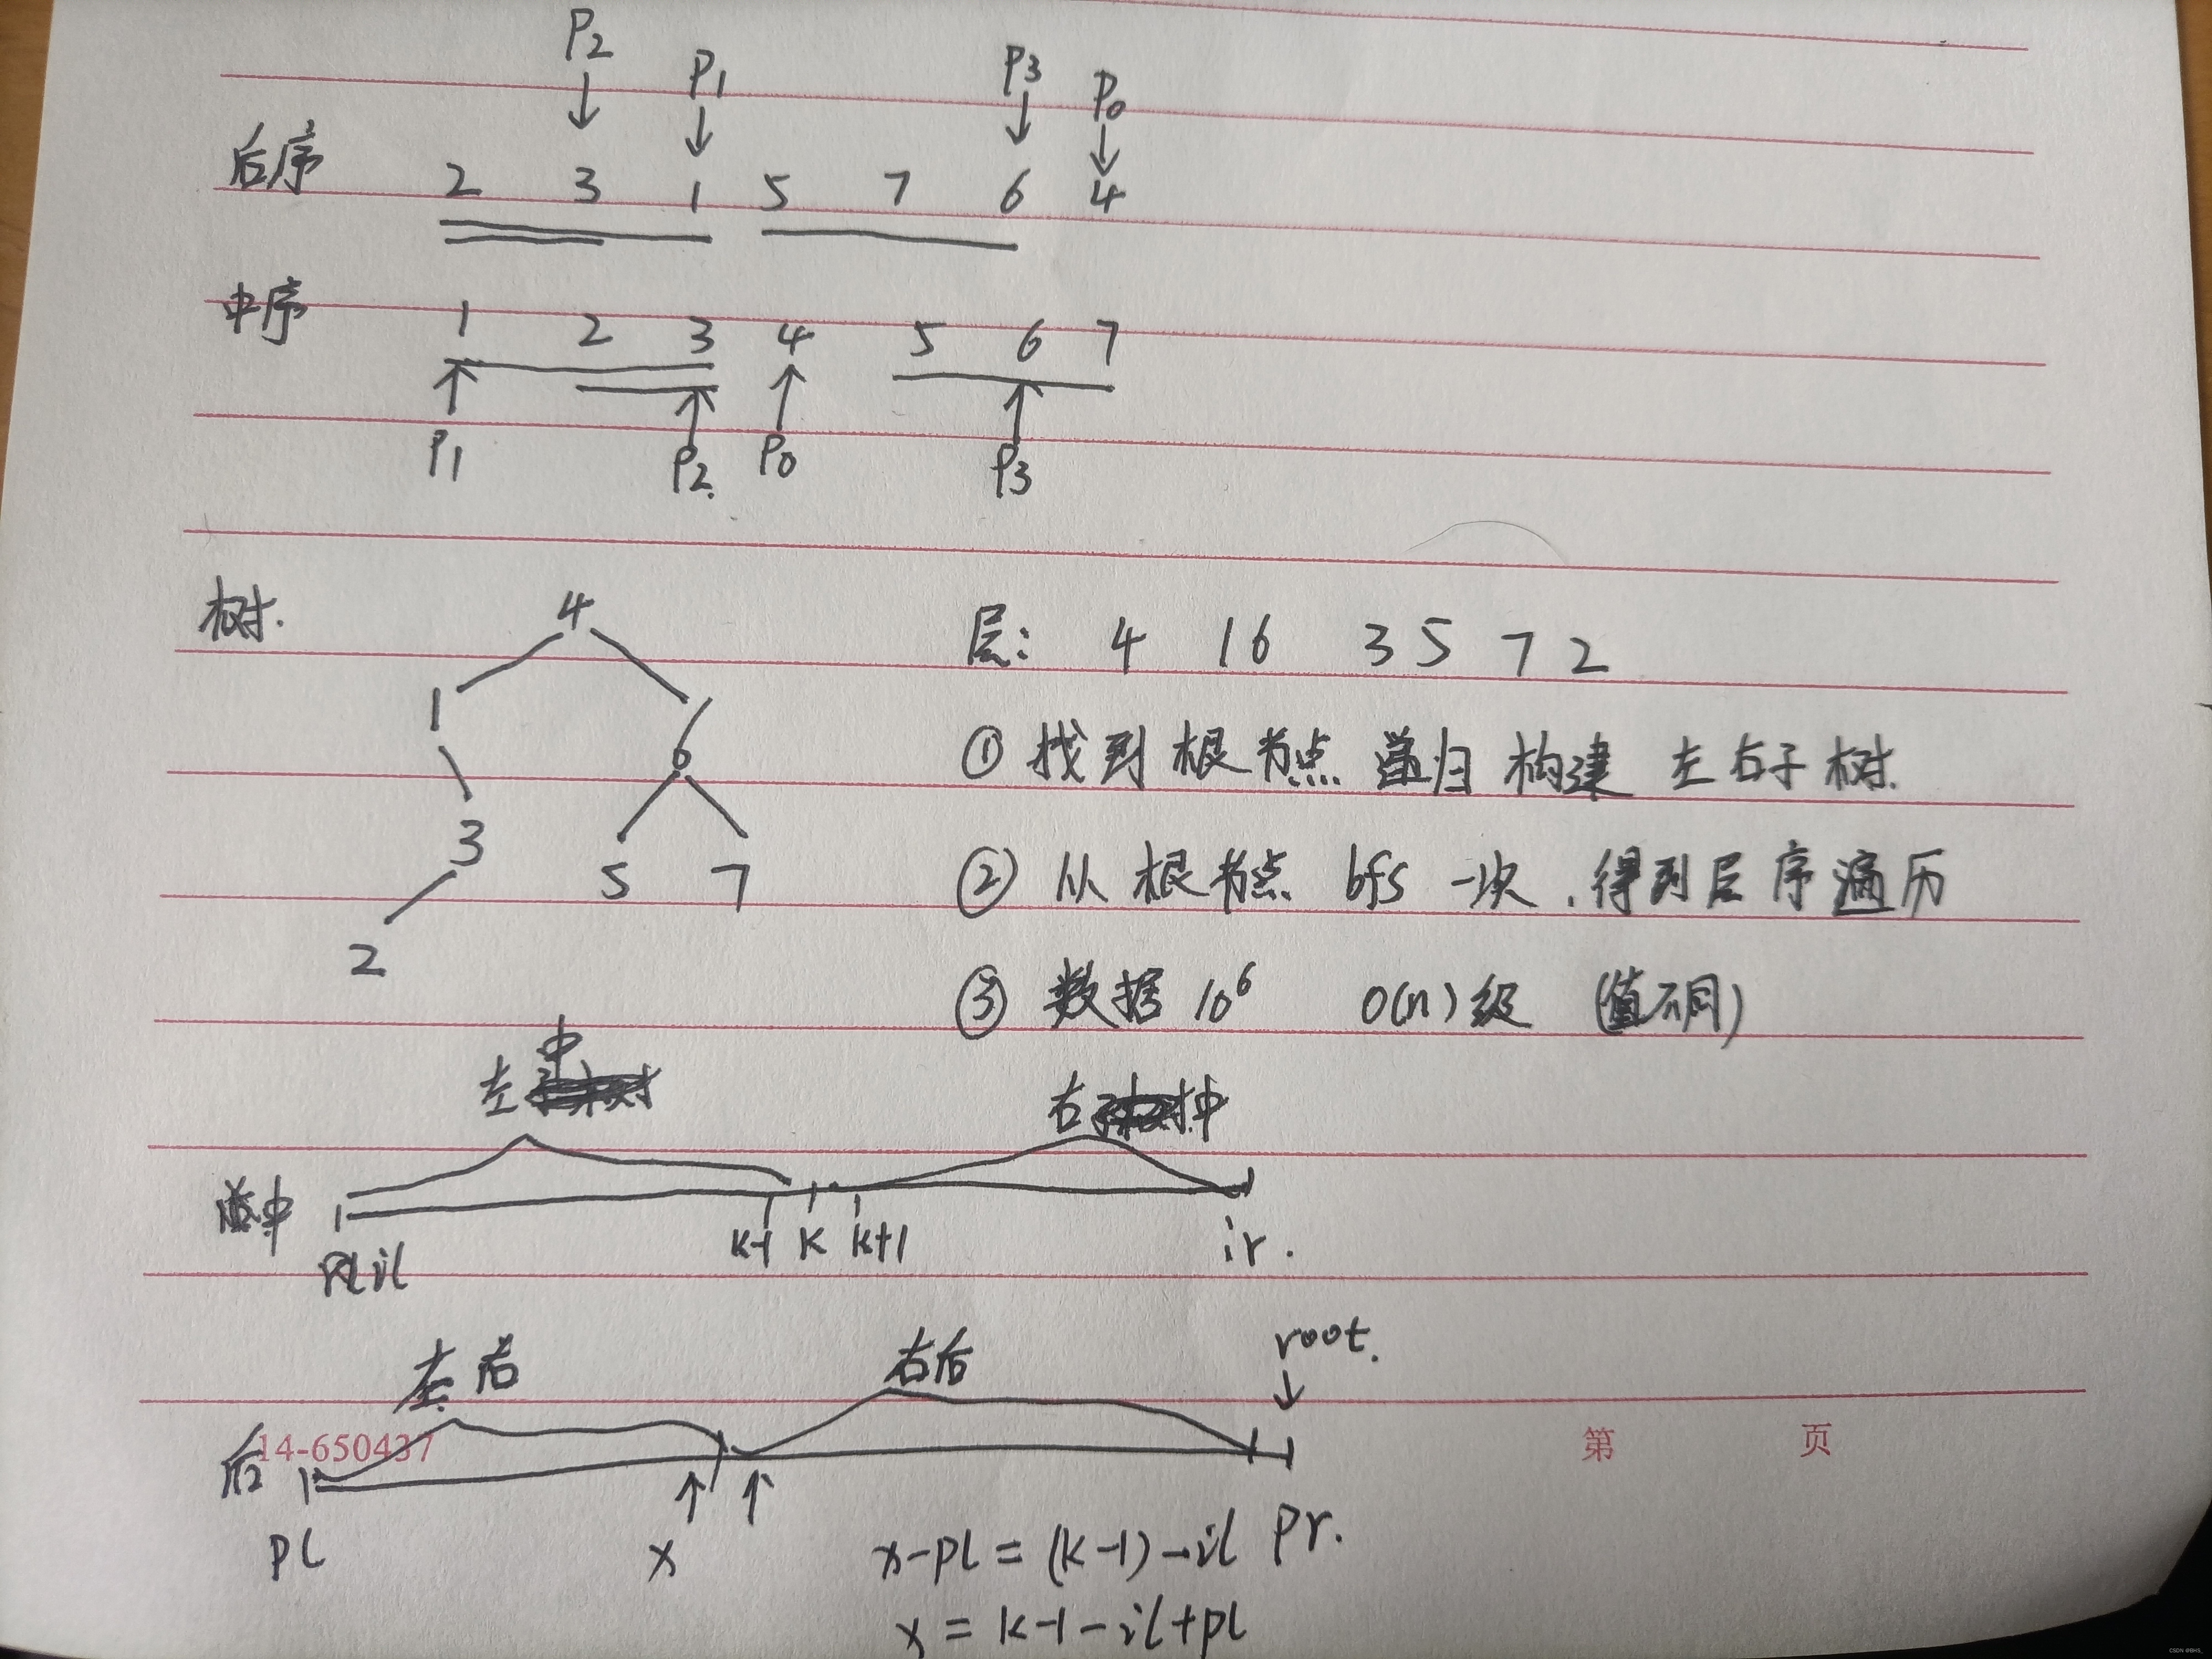 P2 P1 P3 P0
后序 2 3 1 5 7 6 4
中序 1 2 3 4 5 6 7
P1 P2. P0 P3
树.
4
1 6
3 5 7
2
层: 4 1 6 3 5 7 2
① 找到根节点 递归 构建 左右子树.
② 从根节点 bfs 一次.得到层序遍历
③ 数据 10⁶ O(n)级 (值不同)
左中 右中
中
il k-1 k k+1 ir.
左后 右后 root.
后
14-650437 第 页
pl x pr.
x-pl=(k-1)-il
x=k-1-il+pl
CSDN @BHS_